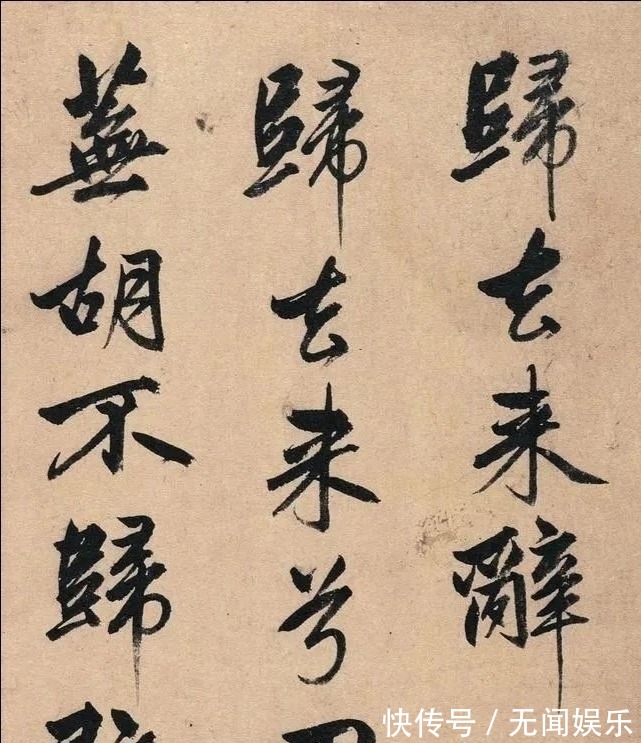 歸去来辭
歸去来兮
蕪胡不歸
快传号／无闻娱乐